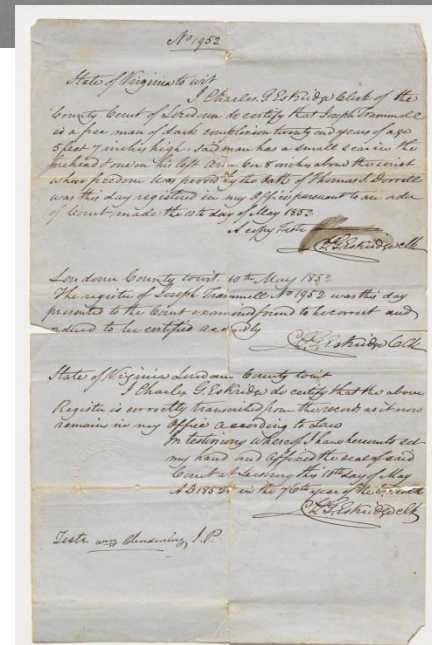 No 1952
State of Virginia to wit
I Charles G. Eskridge Clerk of the
County Court of Loudoun do certify that Joseph Trammell
is a free man of dark complexion twenty one years of age
5 feet 7 inches high. Said man has a small scar in the
forehead & one on his left arm 5 inches above the wrist
whose freedom was proved by the oath of Thomas Dorrell
was this day registered in my Office pursuant to an order
of Court made the 10th day of May 1852
A copy Teste
C. G. Eskridge Clk
Loudoun County Court 10th May 1852
The register of Joseph Trammell No 1952 was this day
presented to the Court examined found to be correct and
ordered to be certified accordly
C. G. Eskridge Clk
State of Virginia Loudoun County to wit
I Charles G. Eskridge do certify that the above
Register is correctly transcribed from the records as it now
remains in my Office according to Law
In testimony whereof I have hereunto set
my hand and affixed the seal of said
Court at Leesburg this 10th day of May
AD 1852 in the 76th year of the
C. G. Eskridge Clk
Teste Clendening J.P.